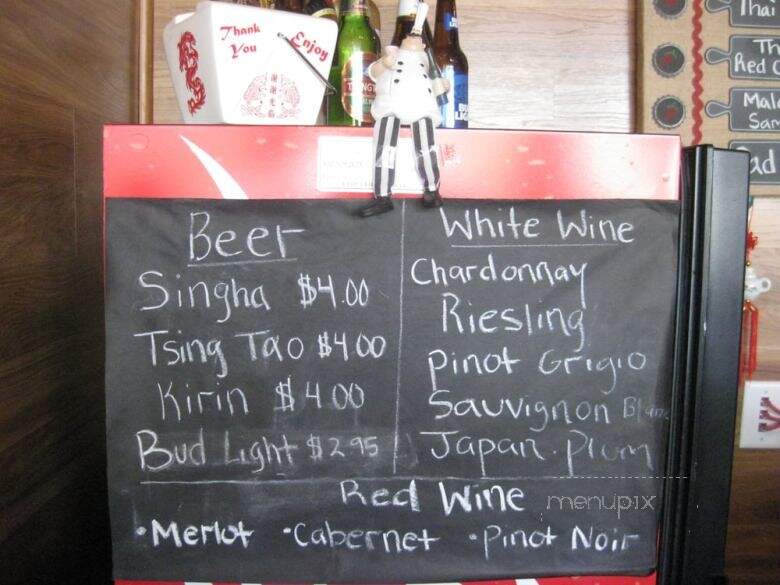 Thank
You
Enjoy
Thai
Th
Red C
Mala
Sam
ad
BUD
LIGHT
Beer
Singha $4.00
Tsing Tao $4.00
Kirin $4.00
Bud Light $2.95
White Wine
Chardonnay
Riesling
Pinot Grigio
Sauvignon Blanc
Japan. Plum
Red Wine
•Merlot •Cabernet •Pinot Noir
menupix